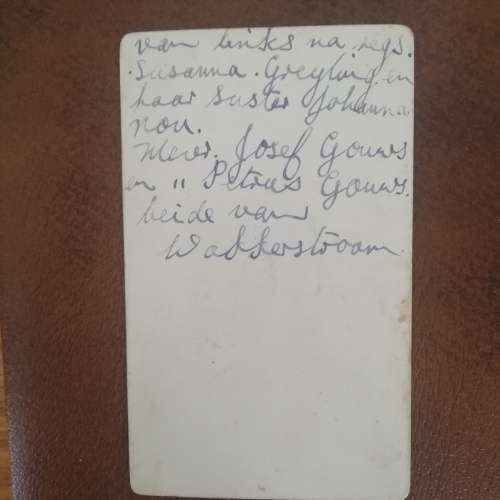 van links na regs.
Susanna. Greyling en
haar suster Johanna
nou.
Mevr. Josef Gouws
en " Petrus Gouws.
beide van
Wakkerstroom.